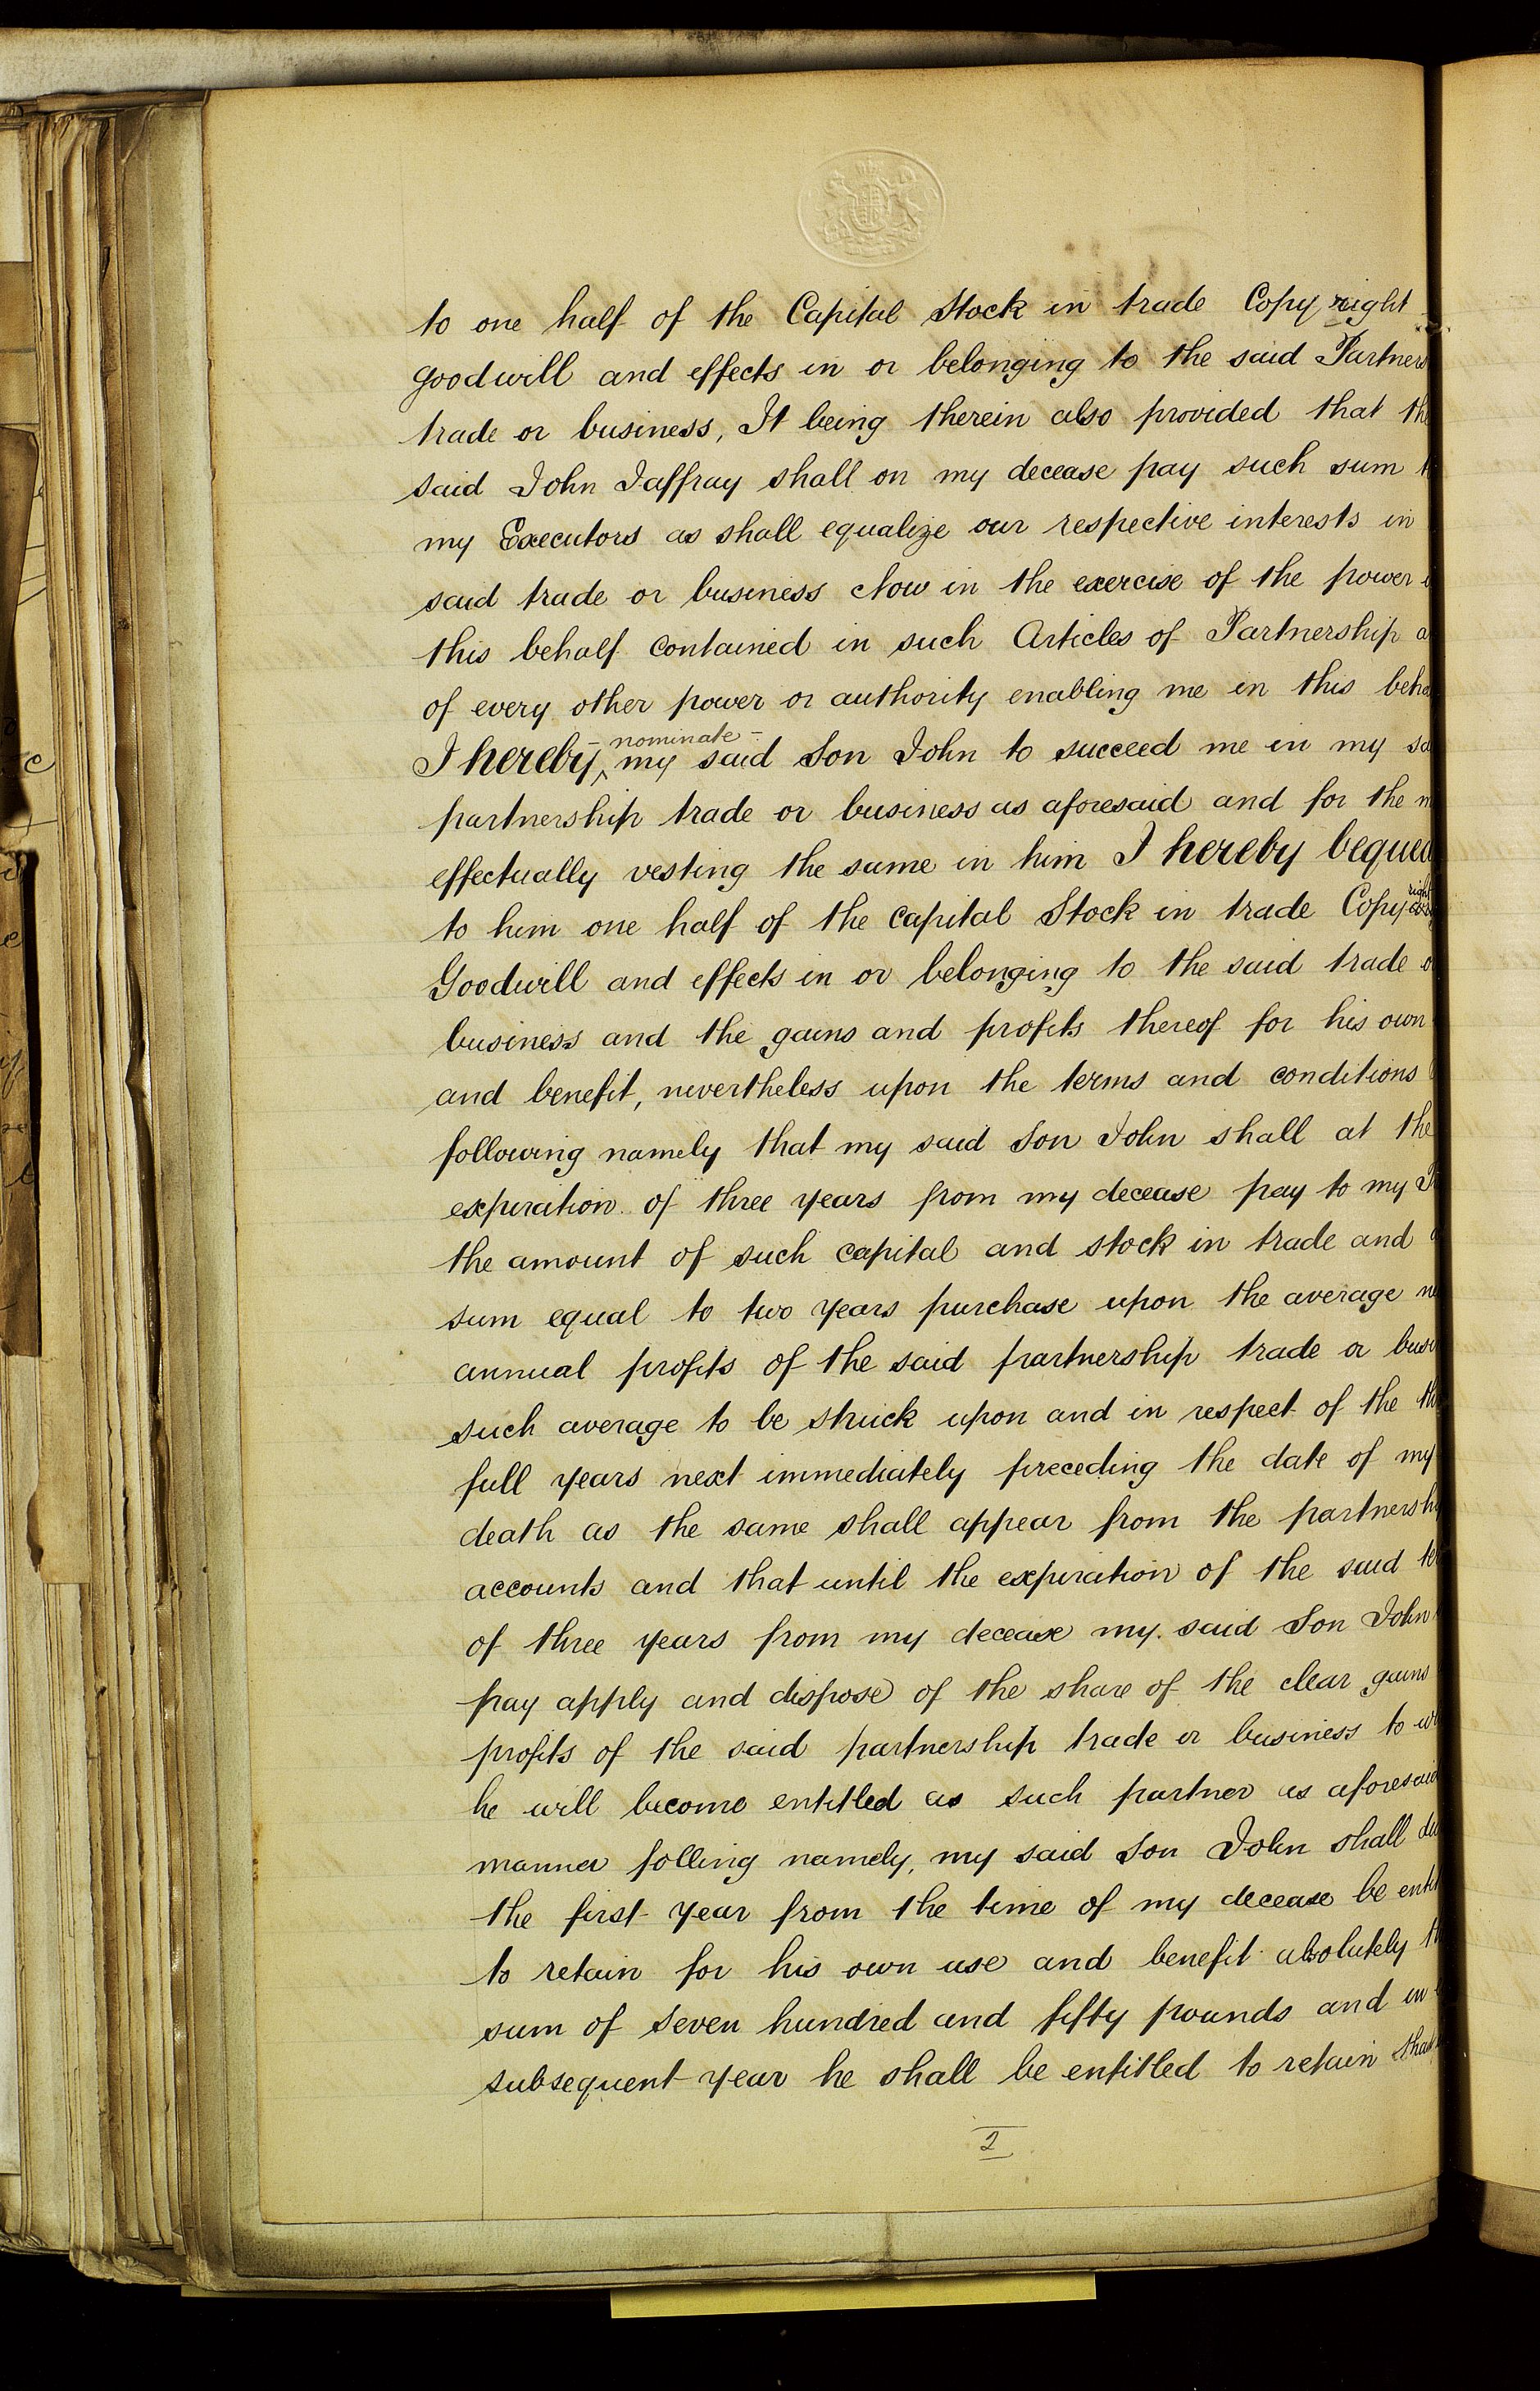 to one half of the Capital Stock in trade Copy right
goodwill and effects in or belonging to the said Partners
trade or business, It being therein also provided that the
said John Jaffray shall on my decease pay such sum
my Executors as shall equalize our respective interests in
said trade or business Now in the exercise of the power
this behalf contained in such Articles of Partnership a
of every other power or authority enabling me in this beha
nominate
I hereby my said Son John to succeed me in my sa
partnership trade or business as aforesaid and for the m
effectually vesting the same in him I hereby bequea
to him one half of the capital Stock in trade Copy right
Goodwill and effects in or belonging to the said trade o
business and the gains and profits thereof for his own
and benefit, nevertheless upon the terms and conditions
following namely that my said Son John shall at the
expiration of three years from my decease pay to my
the amount of such capital and stock in trade and
sum equal to two years purchase upon the average ne
annual profits of the said partnership trade or busi
such average to be struck upon and in respect of the th
full years next immediately preceding the date of my
death as the same shall appear from the partnersh
accounts and that until the expiration of the said te
of three years from my decease my said Son John
pay apply and dispose of the share of the clear gains
profits of the said partnership trade or business to w
he will become entitled as such partner as aforesaid
manner folling namely, my said Son John shall du
the first year from the time of my decease be entit
to retain for his own use and benefit absolutely th
sum of seven hundred and fifty pounds and in
subsequent year he shall be entitled to retain that
2